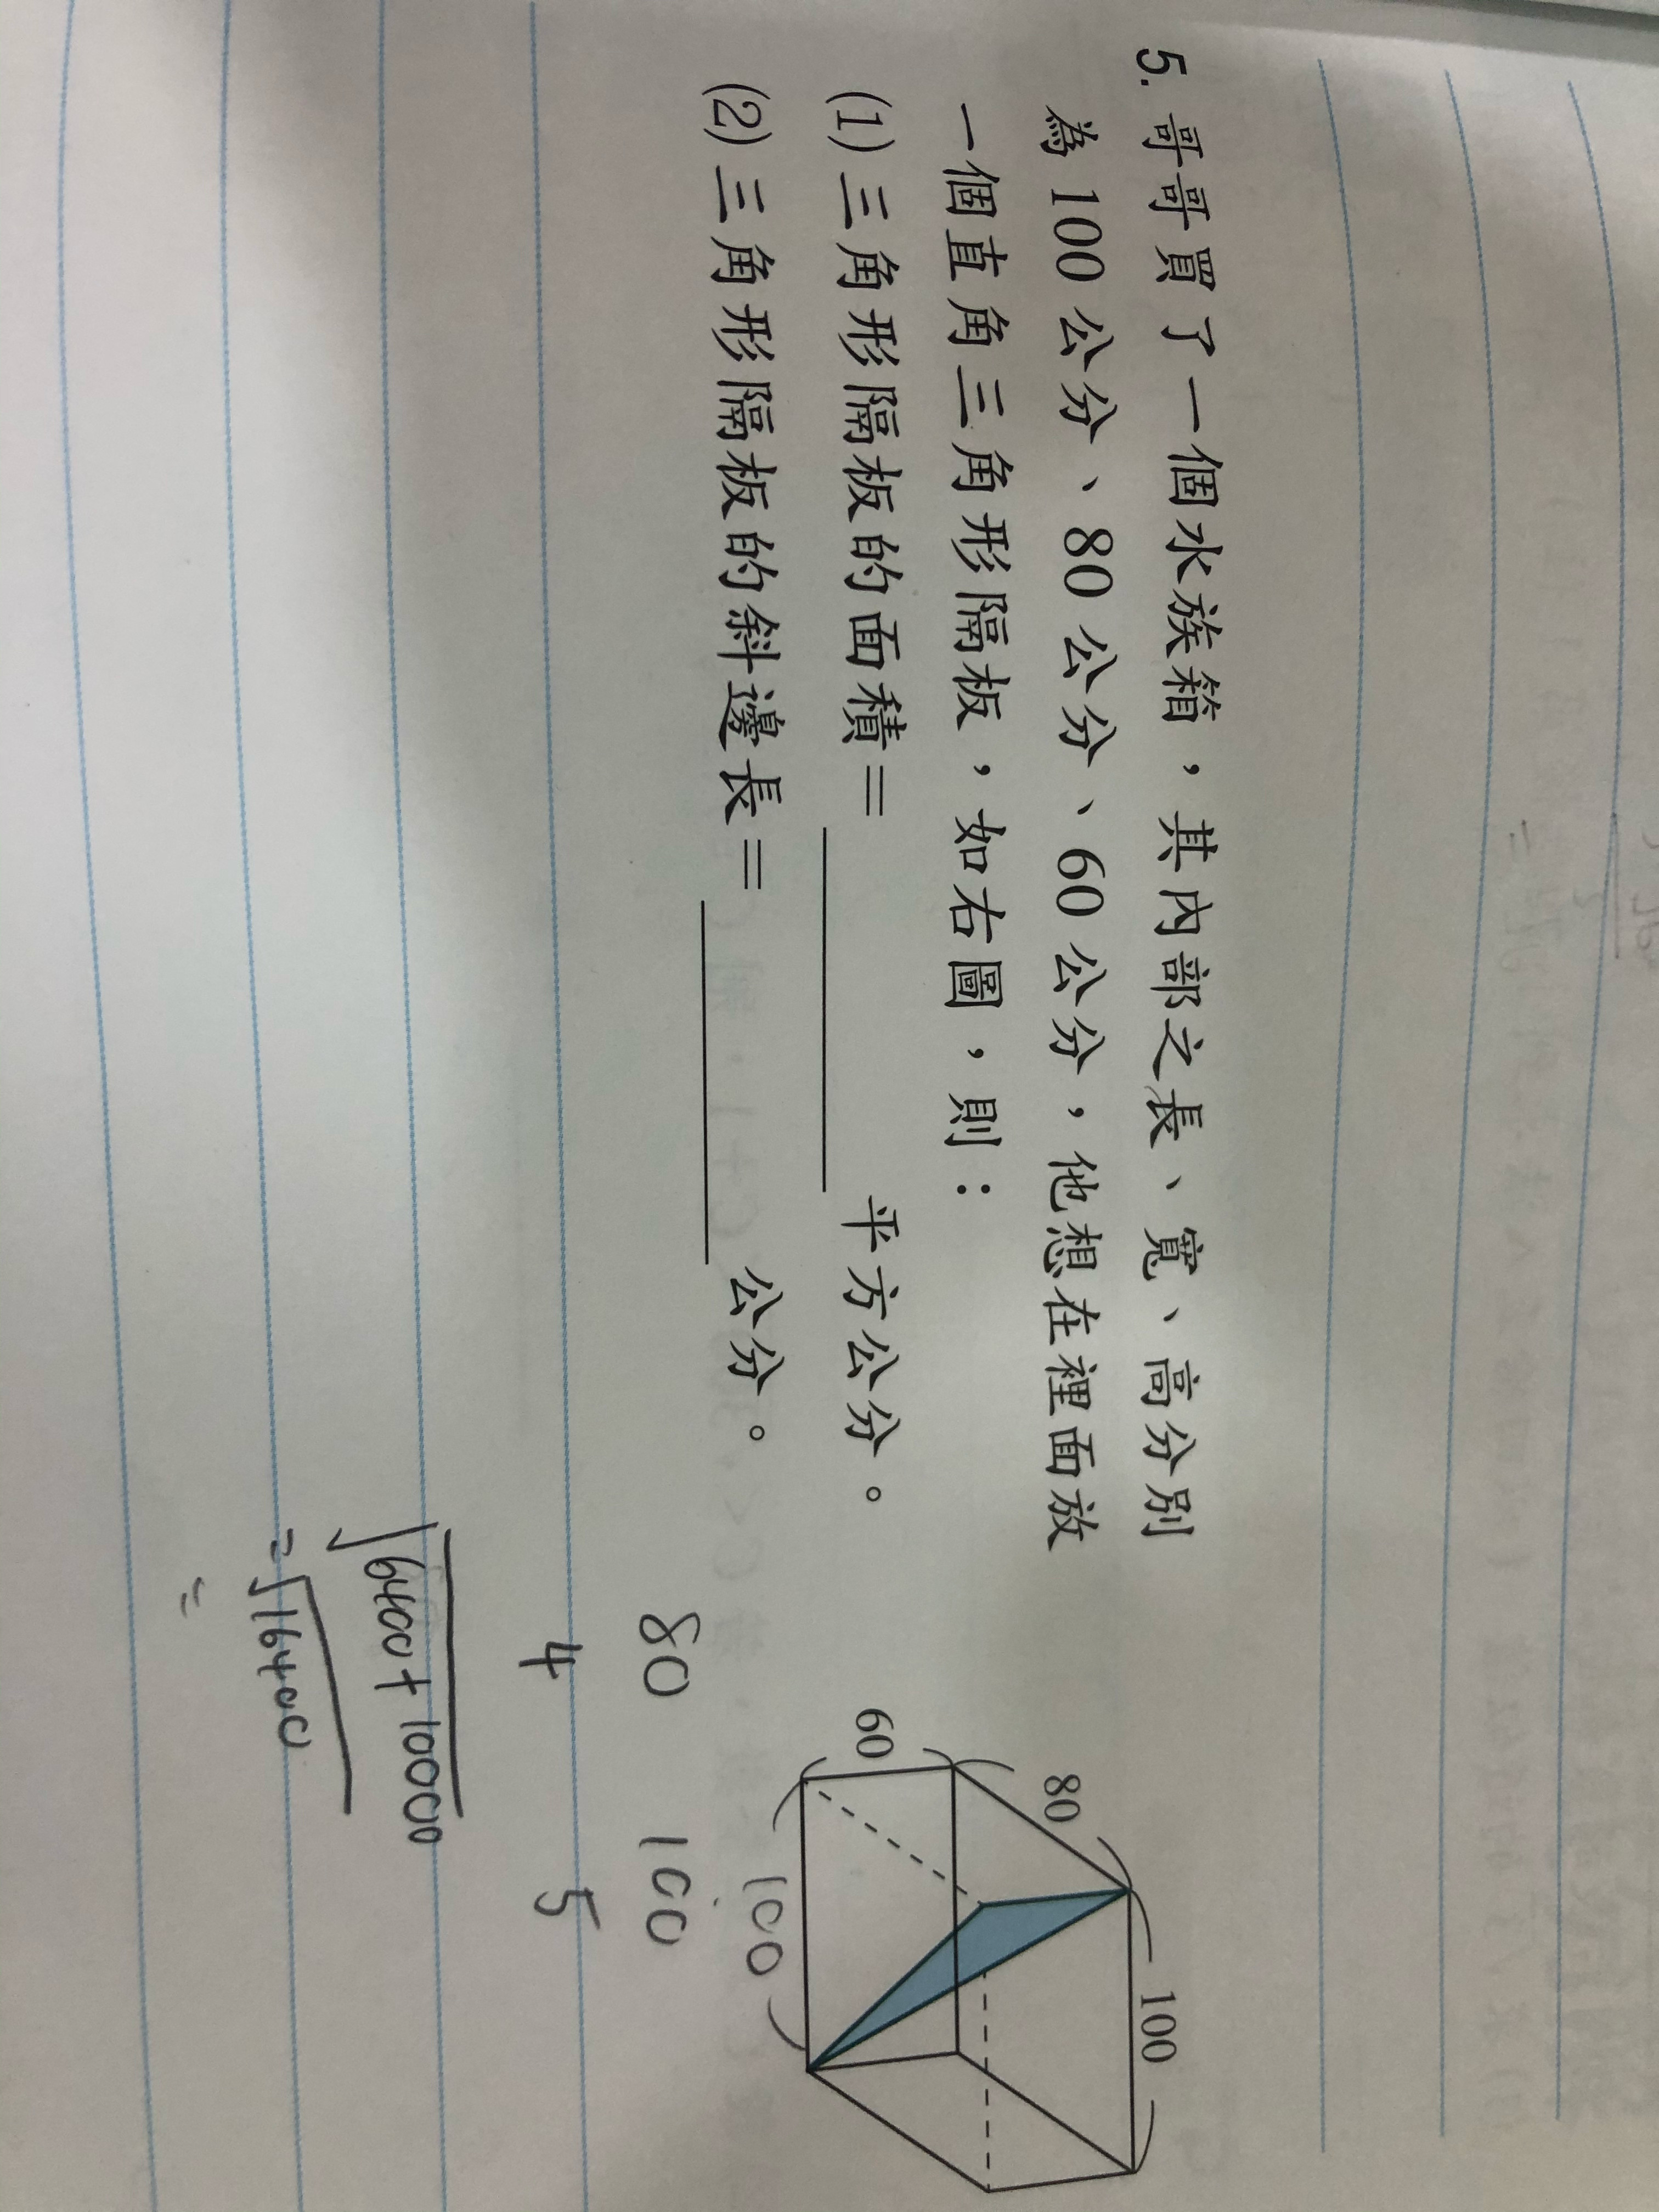 5. 哥哥買了一個水族箱，其內部之長、寬、高分別
為 100 公分、80 公分、60 公分，他想在裡面放
一個直角三角形隔板，如右圖，則：
(1) 三角形隔板的面積＝ 平方公分。
(2) 三角形隔板的斜邊長＝ 公分。
100
80
60
100
80 100
4 5
√6400+10000
=√16400
=